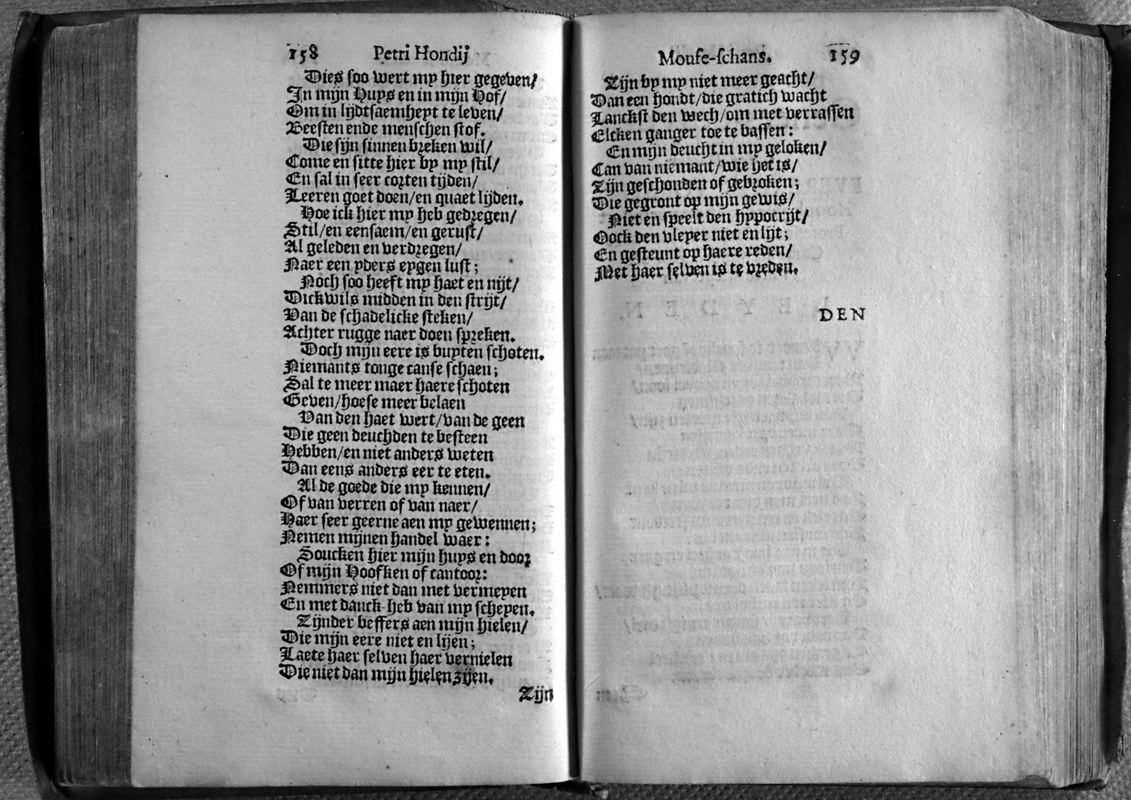 158 Petri Hondij
Dies soo wert my hier gegeven/
In mijn Huys en in mijn Hof/
Om in lijdtsaemheyt te leven/
Beesten ende menschen stof.
Die sijn sinnen breken wil/
Come en sitte hier by my stil/
En sal in seer corten tijden/
Leeren goet doen/en quaet lijden.
Hoe ick hier my heb gedregen/
Stil/en eensaem/en gerust/
Al geleden en verdregen/
Naer een yders eygen lust;
Noch soo heeft my haet en nijt/
Dickwils midden in den strijt/
Van de schadelicke steken/
Achter rugge naer doen spreken.
Doch mijn eere is buyten schoten.
Niemants tonge canse schaen;
Sal te meer maer haere schoten
Geven/hoese meer belaen
Van den haet wert/van de geen
Die geen deuchden te besteen
Hebben/en niet anders weten
Dan eens anders eer te eten.
Al de goede die my kennen/
Of van verren of van naer/
Haer seer geerne aen my gewennen;
Nemen mijnen handel waer:
Soucken hier mijn huys en door
Of mijn Hoofken of cantoor:
Nemmers niet dan met vermeyen
En met danck heb van my scheyen.
Zijnder beffers aen mijn hielen/
Die mijn eere niet en lijen;
Laete haer selven haer vernielen
Die niet dan mijn hielen zijen.
Zijn
Mouse-schans. 159
Zijn by my niet meer geacht/
Dan een hondt/die gratich wacht
Lanckst den wech/om met verrassen
Elcken ganger toe te bassen:
En mijn deucht in my geloken/
Can van niemant/wie het is/
Zijn geschonden of gebroken;
Die gegront op mijn gewis/
Niet en speelt den hypocrijt/
Oock den vleyer niet en lijt;
En gesteunt op haere reden/
Met haer selven is te vreden.
DEN